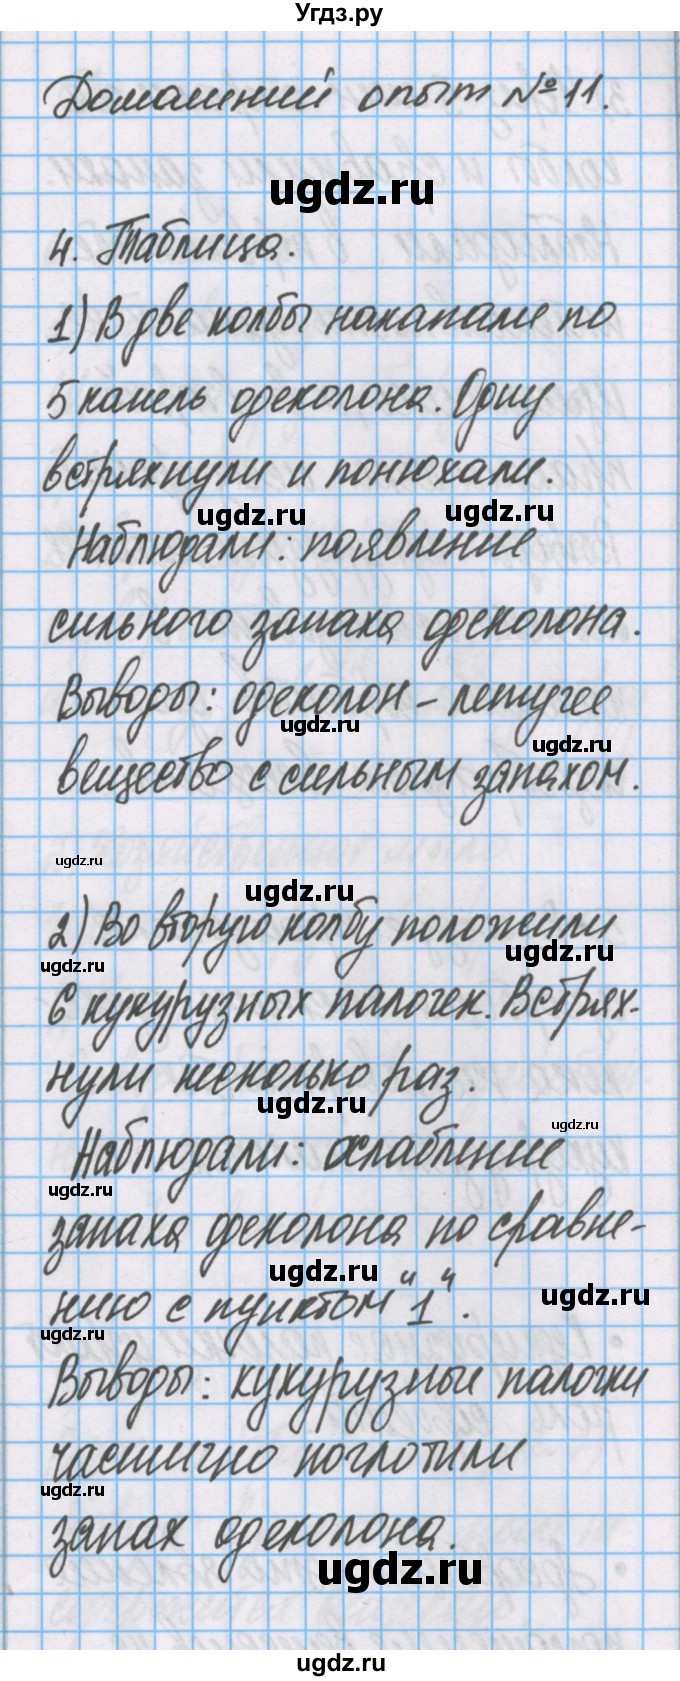 Угдз.ру
Домашний опыт №11.
ugdz.ru
4. Таблица.
1) В две колбы накапали по
5 капель одеколона. Одну
встряхнули и понюхали.
ugdz.ru
ugdz.ru
Наблюдали: появление
сильного запаха одеколона.
Выводы: одеколон – летучее
ugdz.ru
ugdz.ru
вещество с сильным запахом.
ugdz.ru
ugdz.ru
2) Во вторую колбу положили
ugdz.ru
ugdz.ru
6 кукурузных палочек. Встрях-
нули несколько раз.
ugdz.ru
ugdz.ru
Наблюдали: ослабление
ugdz.ru
запаха одеколона по сравне-
ugdz.ru
нию с пунктом "1".
ugdz.ru
ugdz.ru
Выводы: кукурузные палочки
частично поглотили
ugdz.ru
запах одеколона.
ugdz.ru
ugdz.ru